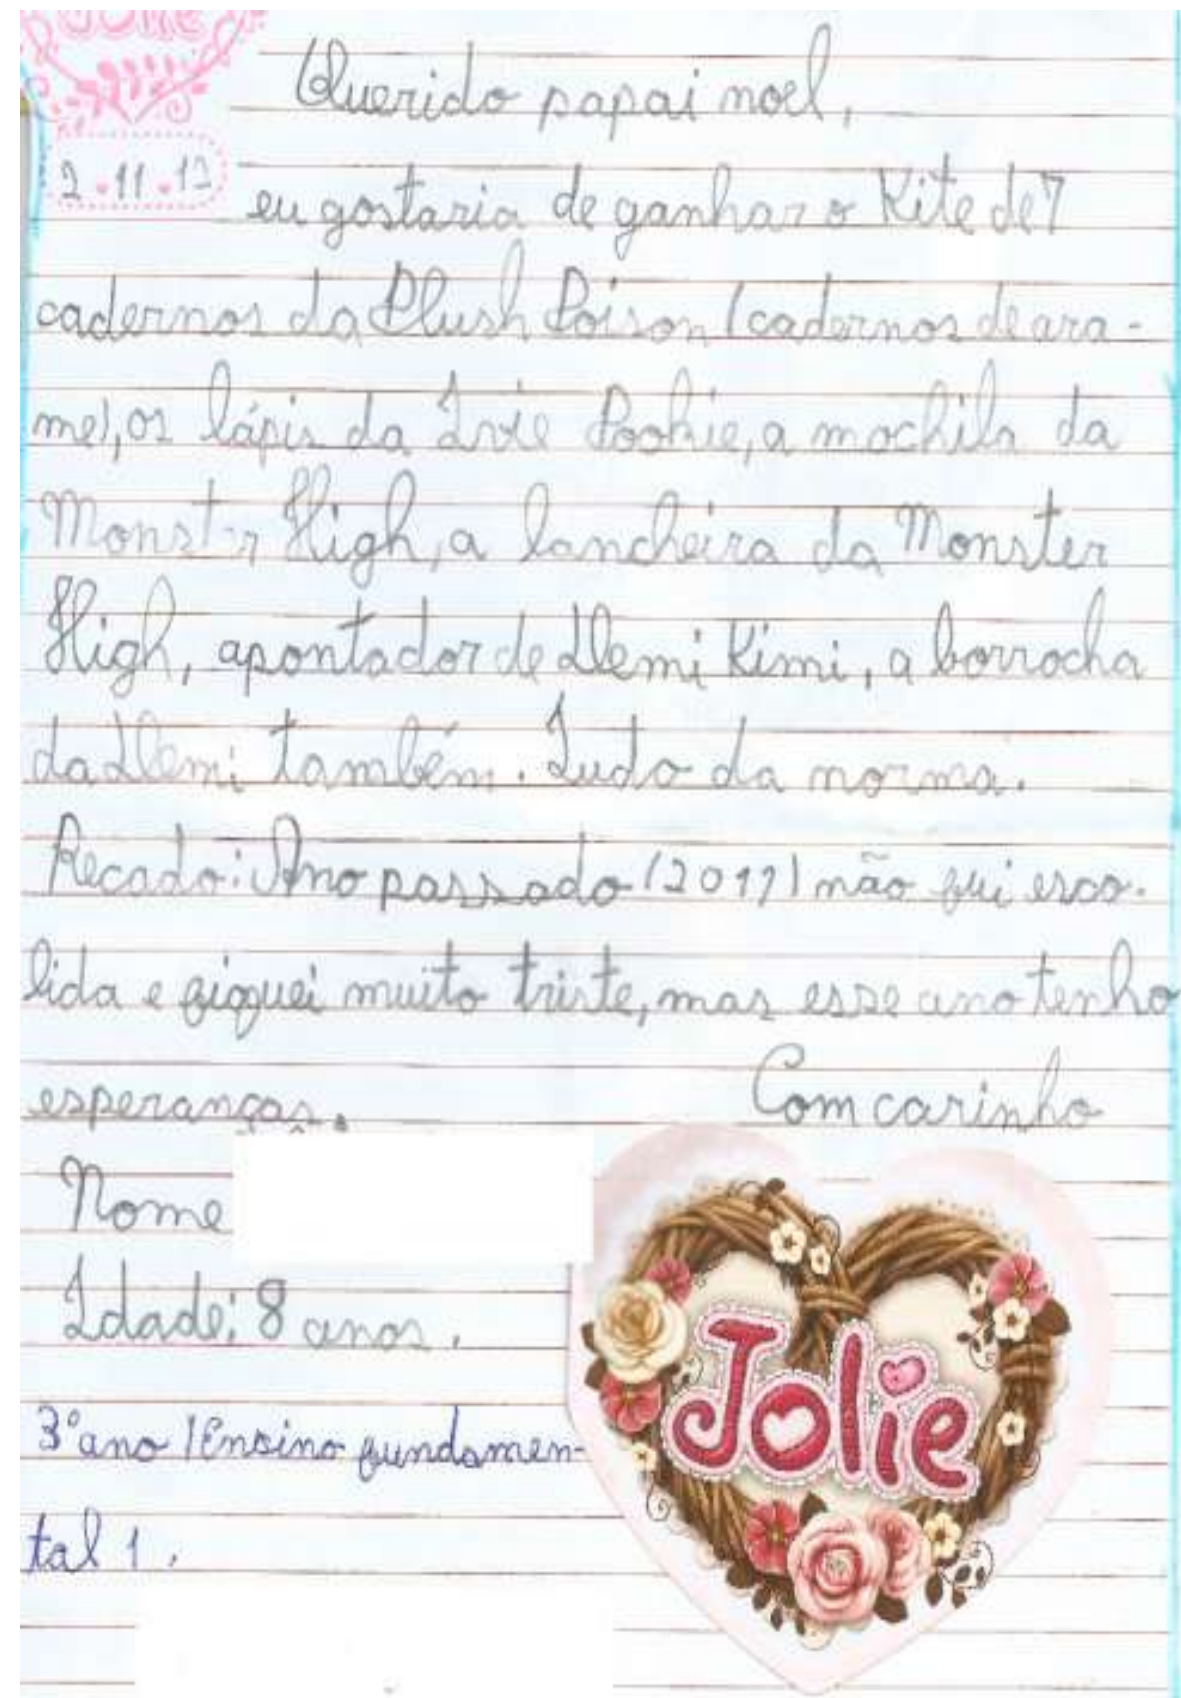 Jolie
Querido papai noel,
2.11.12
eu gostaria de ganhar o Kite de 7
cadernos da Plush Poison (cadernos de ara-
me), os lápis da Ivie Pookie, a mochila da
Monster High, a lancheira da Monster
High, apontador de Hemi Kimi, a borrocha
da Hemi também. Tudo da norma.
Recado: Ano passado (2011) não fui esco-
lida e fiquei muito triste, mas esse ano tenho
esperanças.
Com carinho
Nome
Idade: 8 anos.
Jolie
3º ano /Ensino fundamen-
tal 1.